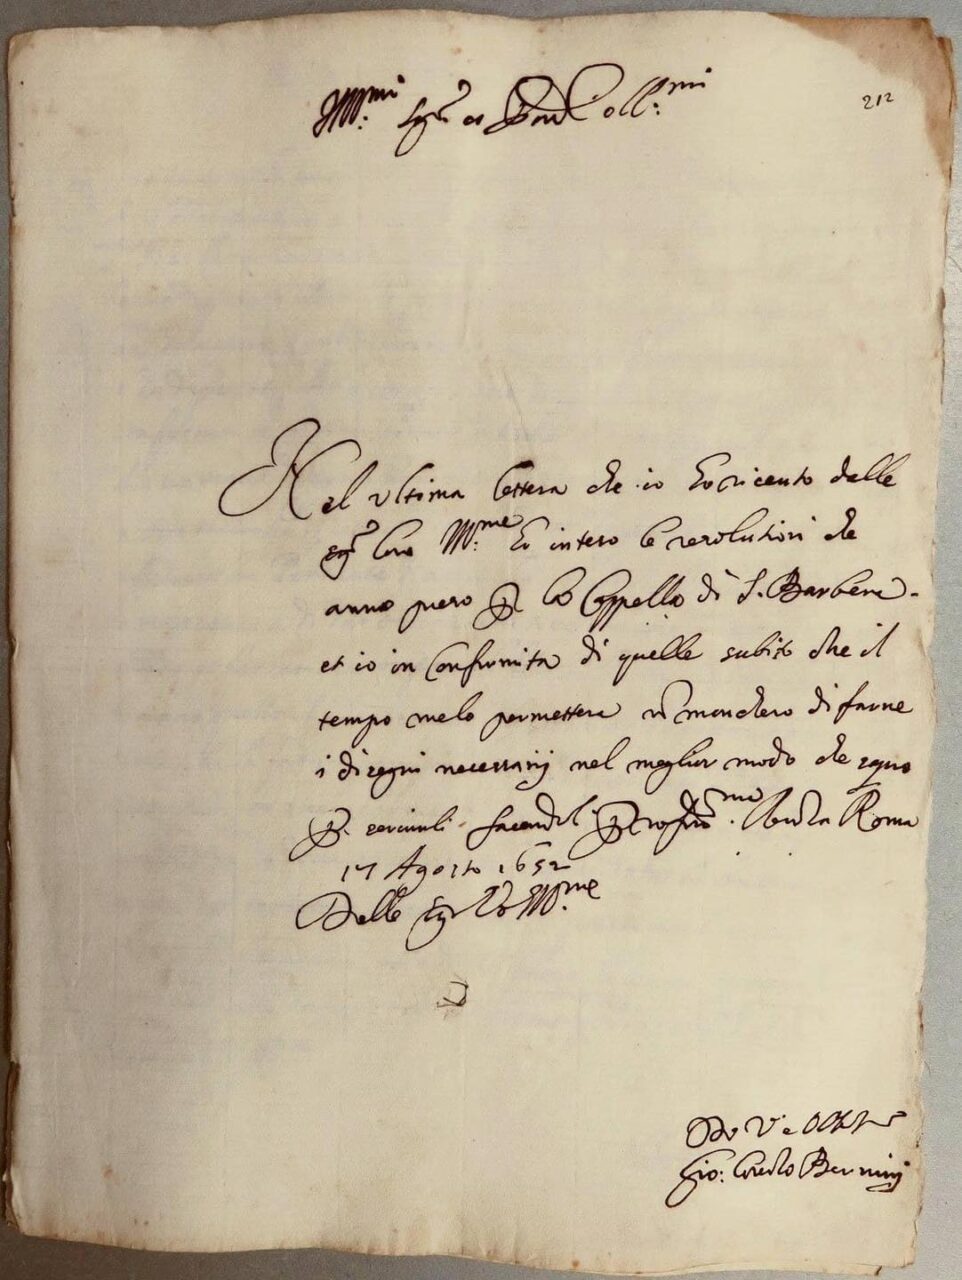 212
Ill:mi Sig.ri et Pad Coll:mi
Nel ultima lettera che io ho riceuto delle
Sig.e loro Ill:me ho inteso le resolutioni che
anno preso p la Cappella di S. Barbera.
et io in Confirmita di quelle subito che il
tempo melo permettera non manchero di farne
i disegni necessarij nel meglior modo che sapro
p. servirli.
Roma
17 Agosto 1652
Delle Sig Lo Ill:me
Gio: Lorenzo Berninj